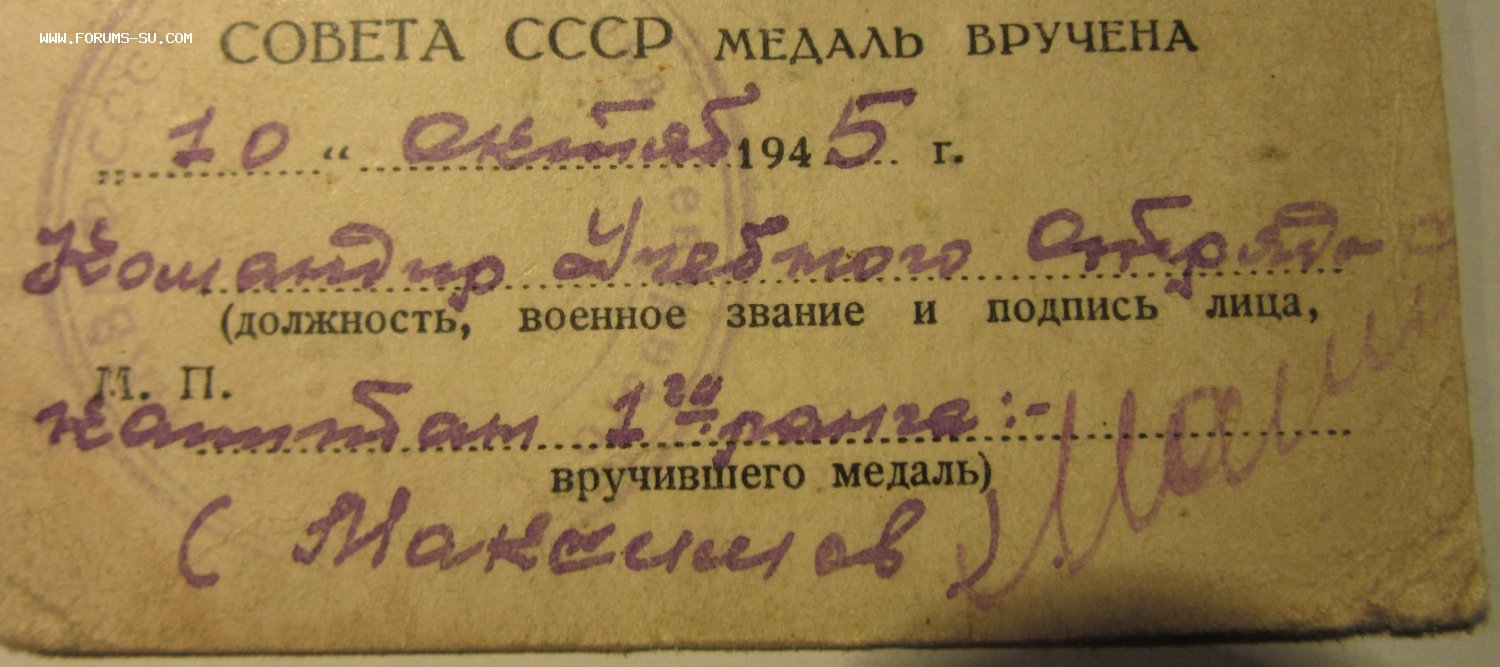 WWW.FORUMS-SU.COM
СОВЕТА СССР МЕДАЛЬ ВРУЧЕНА
„10“ октяб 1945 г.
Командир Учебного Отряда
(должность, военное звание и подпись лица,
М. П.
капитан 1го ранга:-
вручившего медаль)
(Максимов)